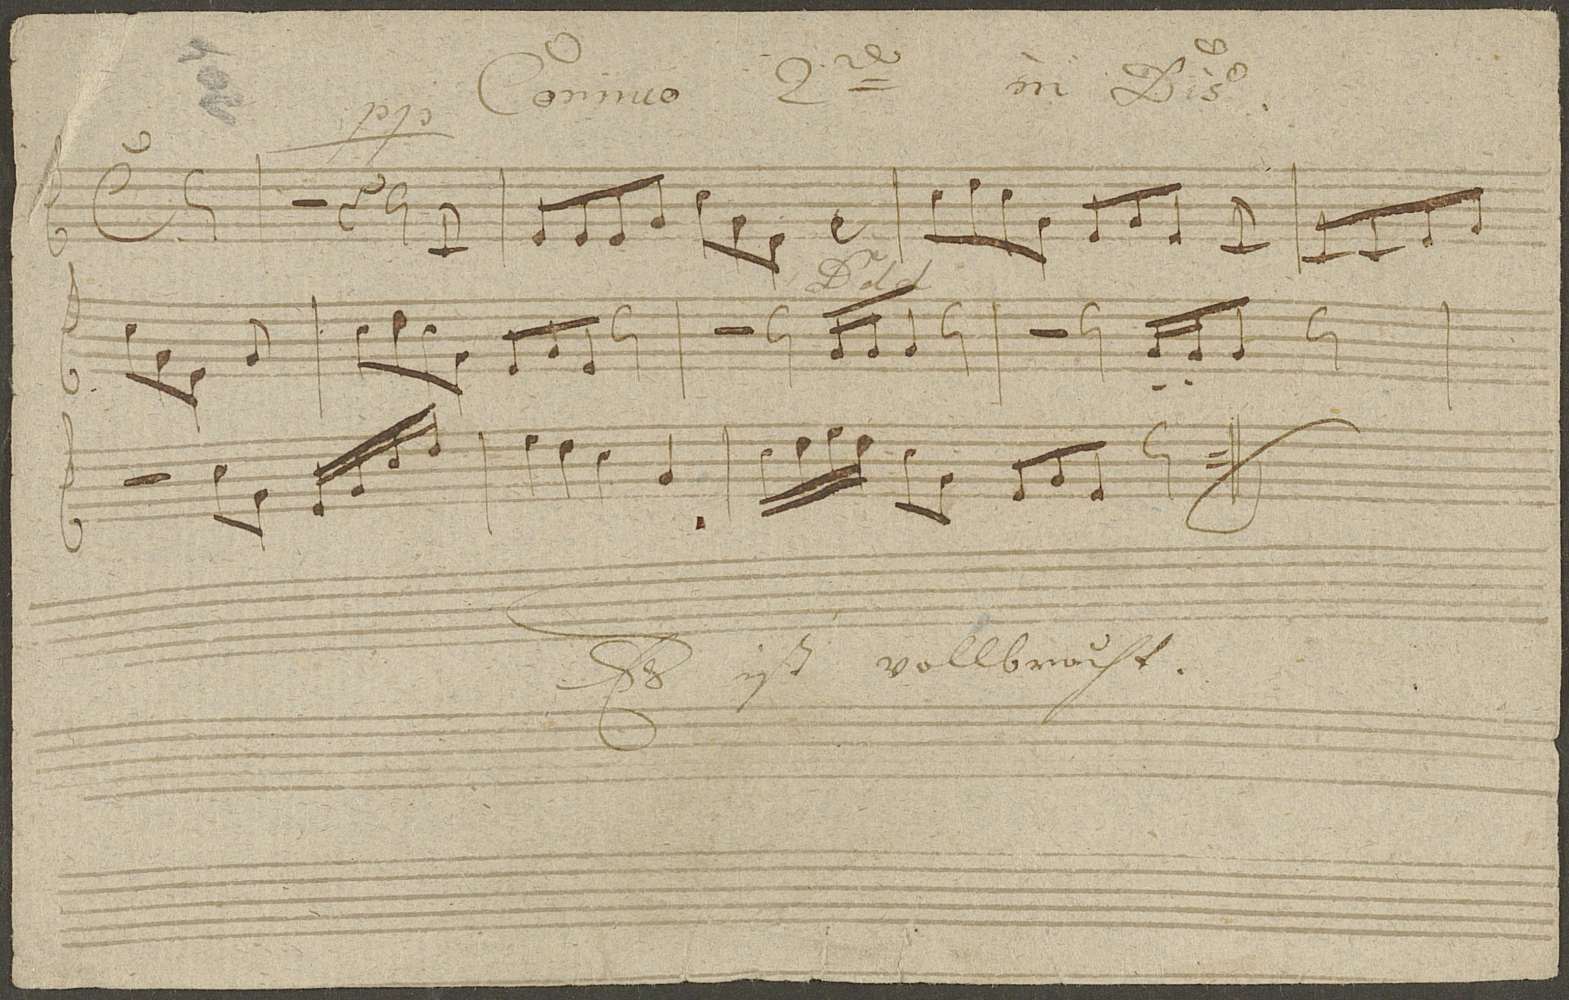 Cornuo 2do in Dis.
ppo
Es ist vollbracht.